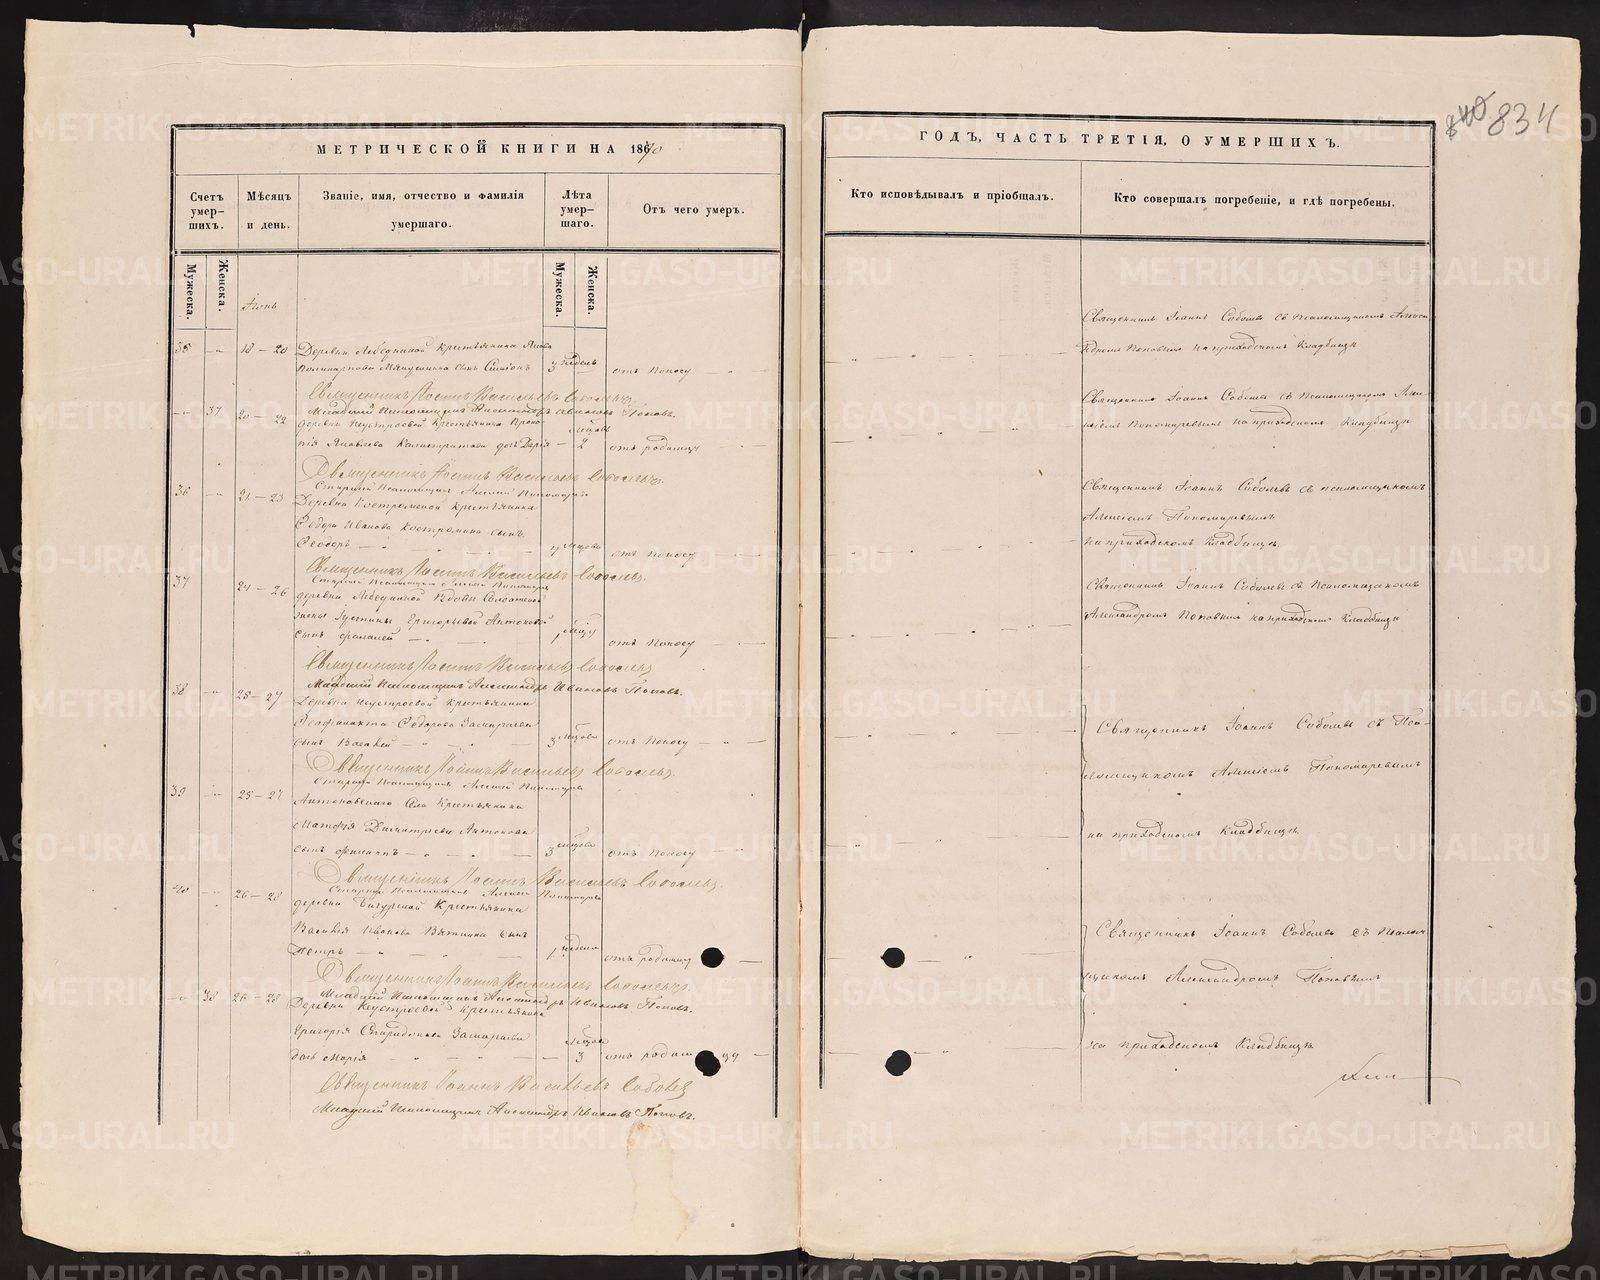 840 834
МЕТРИЧЕСКОЙ КНИГИ НА 1870
ГОДЪ, ЧАСТЬ ТРЕТІЯ, О УМЕРШИХЪ.
Счетъ умер-шихъ.
Мѣсяцъ и день.
Званіе, имя, отчество и фамилія умершаго.
Лѣта умер-шаго.
Отъ чего умеръ.
Кто исповѣдывалъ и пріобщалъ.
Кто совершалъ погребеніе, и гдѣ погребены.
Мужеска.
Женска.
Мужеска.
Женска.
Іюнь
Священникъ Іоаннъ Соболевъ съ Псаломщикомъ
35 18-20 Деревни Лебедкиной Крестьянина Якова
Поповымъ на приходскомъ Кладбищѣ
сынъ Симеонъ 3 недѣль отъ поносу
Священникъ Іоаннъ Васильевъ Соболевъ
Младшій Псаломщикъ Александръ Ивановъ Поповъ.
Священникъ Іоаннъ Соболевъ съ Псаломщикомъ Алек-
37 20-22 деревни Неустроевой Крестьянина Проко-
сѣемъ Пономаревымъ на приходскомъ Кладбищѣ
пія Яковлева Калистратова дочь Дарія 2 Мѣсяц отъ родимцу
Священникъ Іоаннъ Васильевъ Соболевъ
Старшій Псаломщикъ Алексѣй Пономаревъ
36 21-23 Деревни Костроминой Крестьянина
Священникъ Іоаннъ Соболевъ съ псаломщикомъ
Ѳедора Иванова Костромина сынъ
Алексѣемъ Пономаревымъ
Ѳеодоръ отъ поносу
на приходскомъ Кладбищѣ.
Священникъ Іоаннъ Васильевъ Соболевъ
Старшій Псаломщикъ Алексѣй Пономаревъ
37 24-26 деревни Лебедкиной Вдовы Солдатской
Священникъ Іоаннъ Соболевъ съ Псаломщикомъ
жены Іустины Григорьевой Антоновой
Александромъ Поповымъ на приходскомъ Кладбищѣ
сынъ отъ поносу
Священникъ Іоаннъ Васильевъ Соболевъ
Младшій Псаломщикъ Александръ Ивановъ Поповъ.
38 25-27 Деревни Неустроевой Крестьянина
Ѳеофилакта Ѳедорова Замараева
сынъ Василій 3 мѣсяцовъ отъ поносу
Священникъ Іоаннъ Соболевъ съ Пса-
Священникъ Іоаннъ Васильевъ Соболевъ
ломщикомъ Алексѣемъ Пономаревымъ
Старшій Псаломщикъ Алексѣй Пономаревъ
39 25-27 Антоновскаго села Крестьянина
Димитріева Антонова
на приходскомъ Кладбищѣ
сынъ Филиппъ 3 мѣсяцовъ отъ поносу
Священникъ Іоаннъ Васильевъ Соболевъ
Старшій Псаломщикъ Алексѣй Пономаревъ
40 26-28 деревни Крестьянина
Василія Иванова Вяткина сынъ
Священникъ Іоаннъ Соболевъ съ Псалом-
Петръ 1 недѣли отъ родимцу
Священникъ Іоаннъ Васильевъ Соболевъ
щикомъ Александромъ Поповымъ
Младшій Псаломщикъ Александръ Ивановъ Поповъ.
38 26-28 Деревни Неустроевой Крестьянина
Григорія Спиридонова Замараева
дочь Марія 3 Мѣсяц отъ родимцу
на приходскомъ Кладбищѣ
Священникъ Іоаннъ Васильевъ Соболевъ
Младшій Псаломщикъ Александръ Ивановъ Поповъ.
METRIKI.GASO-URAL.RU